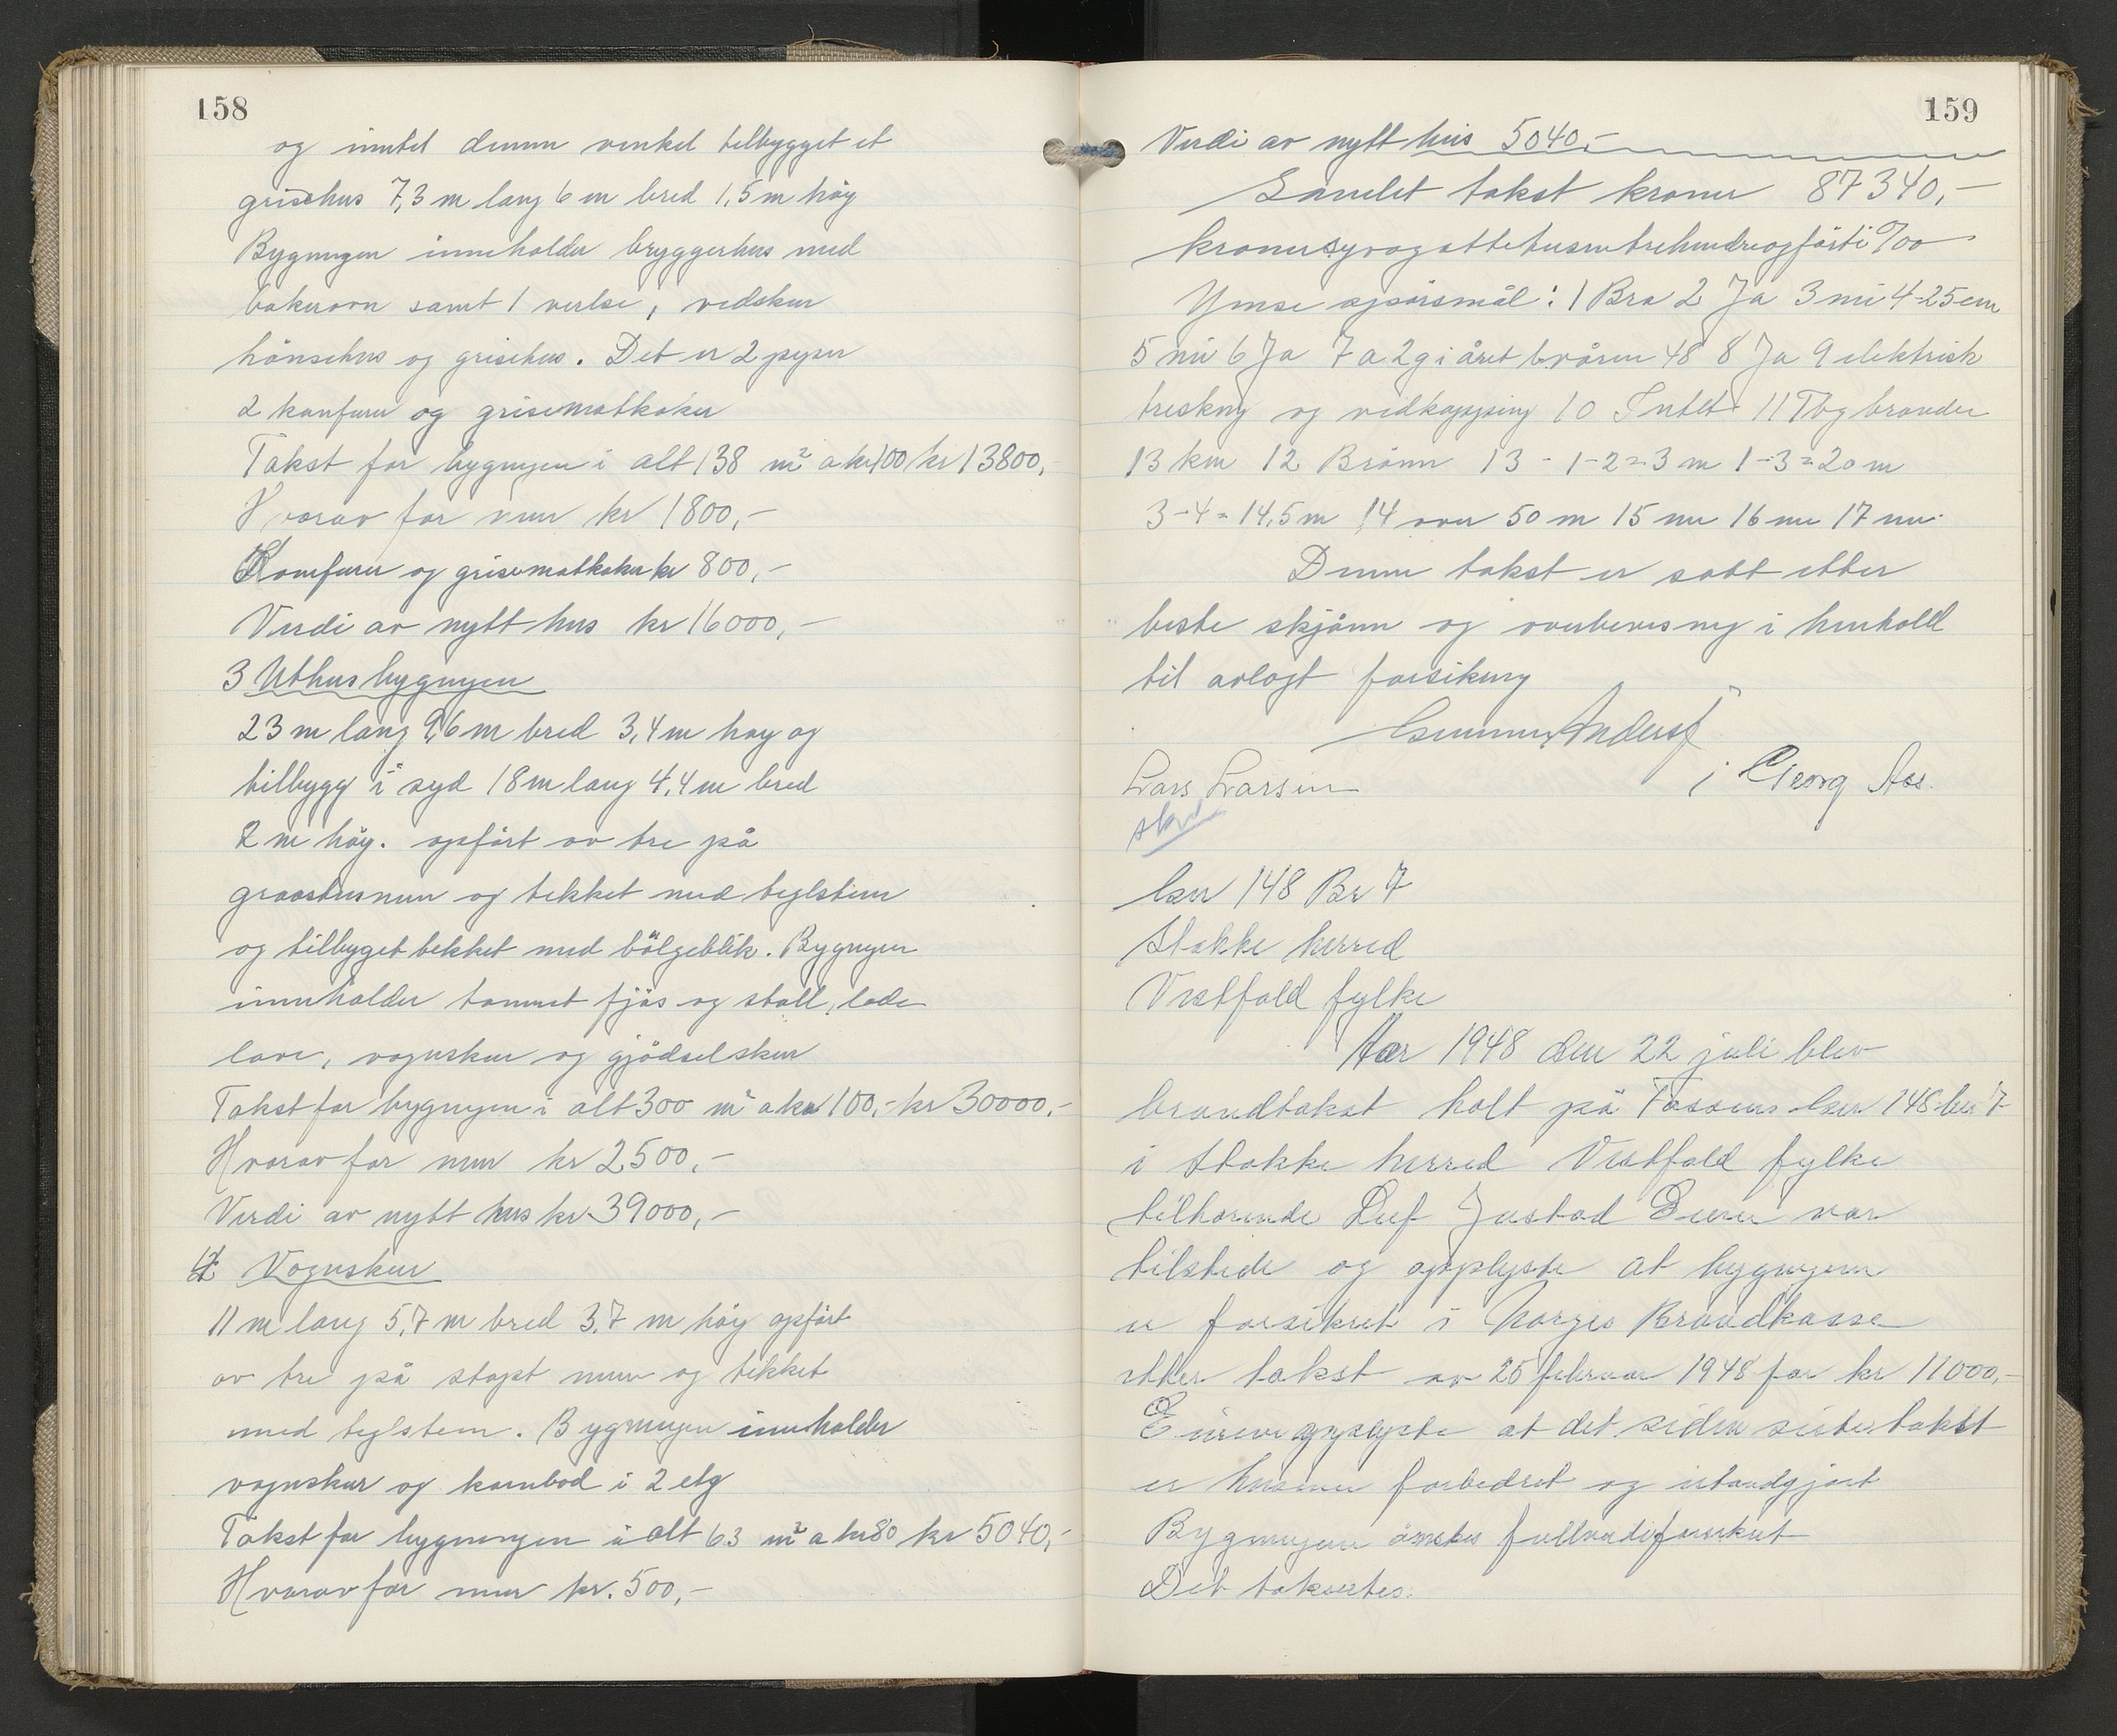 158
og inntil denne vinkel tilbygget et
grisehus 7,3 m lang 6 m bred 1,5 m høg
Bygningen inneholder bryggerhus med
bakerovn samt 1 verlse, vedskur
hönsehus og grisehus. Det er 2 piper
2 komfurer og grisematkoker
Takst for bygningen i alt 138 m² a kr 100 kr 13800,-
Hvorav for mur kr 1800,-
Komfurer og grisematkoker kr 800,-
Verdi av nytt hus kr 16000,-
3 Uthusbygningen
23 m lang 9,6 m bred 3,4 m høy og
tilbygg i syd 18 m lang 4,4 m bred
2 m høg. opført av tre på
graastensmur og tekket med teglstein
og tilbyget tekket med bölgeblik. Bygningen
inneholder tømret fjös og stall, lade
lave, vognskur og gjödselskur
Takst for bygningen i alt 300 m² a kr 100,- kr 30000,-
Hvorav for mur kr 2500,-
Verdi av nytt hus kr 39000,-
4 Vognskur
11 m lang 5,7 m bred 3,7 m høy opført
av tre på støpt mur og tekket
med teglstein. Bygningen inneholder
vognskur og kornbod i 2 etg
Takst for bygningen i alt 63 m² a kr 80 kr 5040,-
Hvorav for mur kr. 500,-
159
Verdi av nytt hus 5040,-
Samlet takst kroner 87340,-
kroner syvogottetusentrehundreogförti 0/00
Ymse spörsmål: 1 Bra 2 Ja 3 nei 4 - 25 cm
5 nei 6 Ja 7 a 2 g i året b våren 48 8 Ja 9 elektrisk
tresking og vedkapping 10 Intet 11 Tbg brander
13 km 12 Brönn 13 - 1-2 = 3 m 1-3 = 20 m
3-4 = 14,5 m 14 over 50 m 15 nei 16 nei 17 nei
Denne takst er satt etter
beste skjönn og overbevisning i henhold
til avlagt forsikring
Gunnar Anders
Lars Larsen Georg Aas.
Gnr 148 Br 7
Stokke herred
Vestfold fylke
Aar 1948 den 22 juli blev
brandtakst holt på Fossens Gnr 148 bnr 7
i Stokke herred Vestfold fylke
tilhorende Leif Justad Eieren var
tilstede og opplyste at bygningene
er forsikret i Norges Brandkasse
etter takst av 25 februar 1948 for kr 11000,-
Eieren opplyste at det siden siste takst
er husene forbedret og istandgjort
Bygningene önskes fullverdiforsikret
Det takseres: